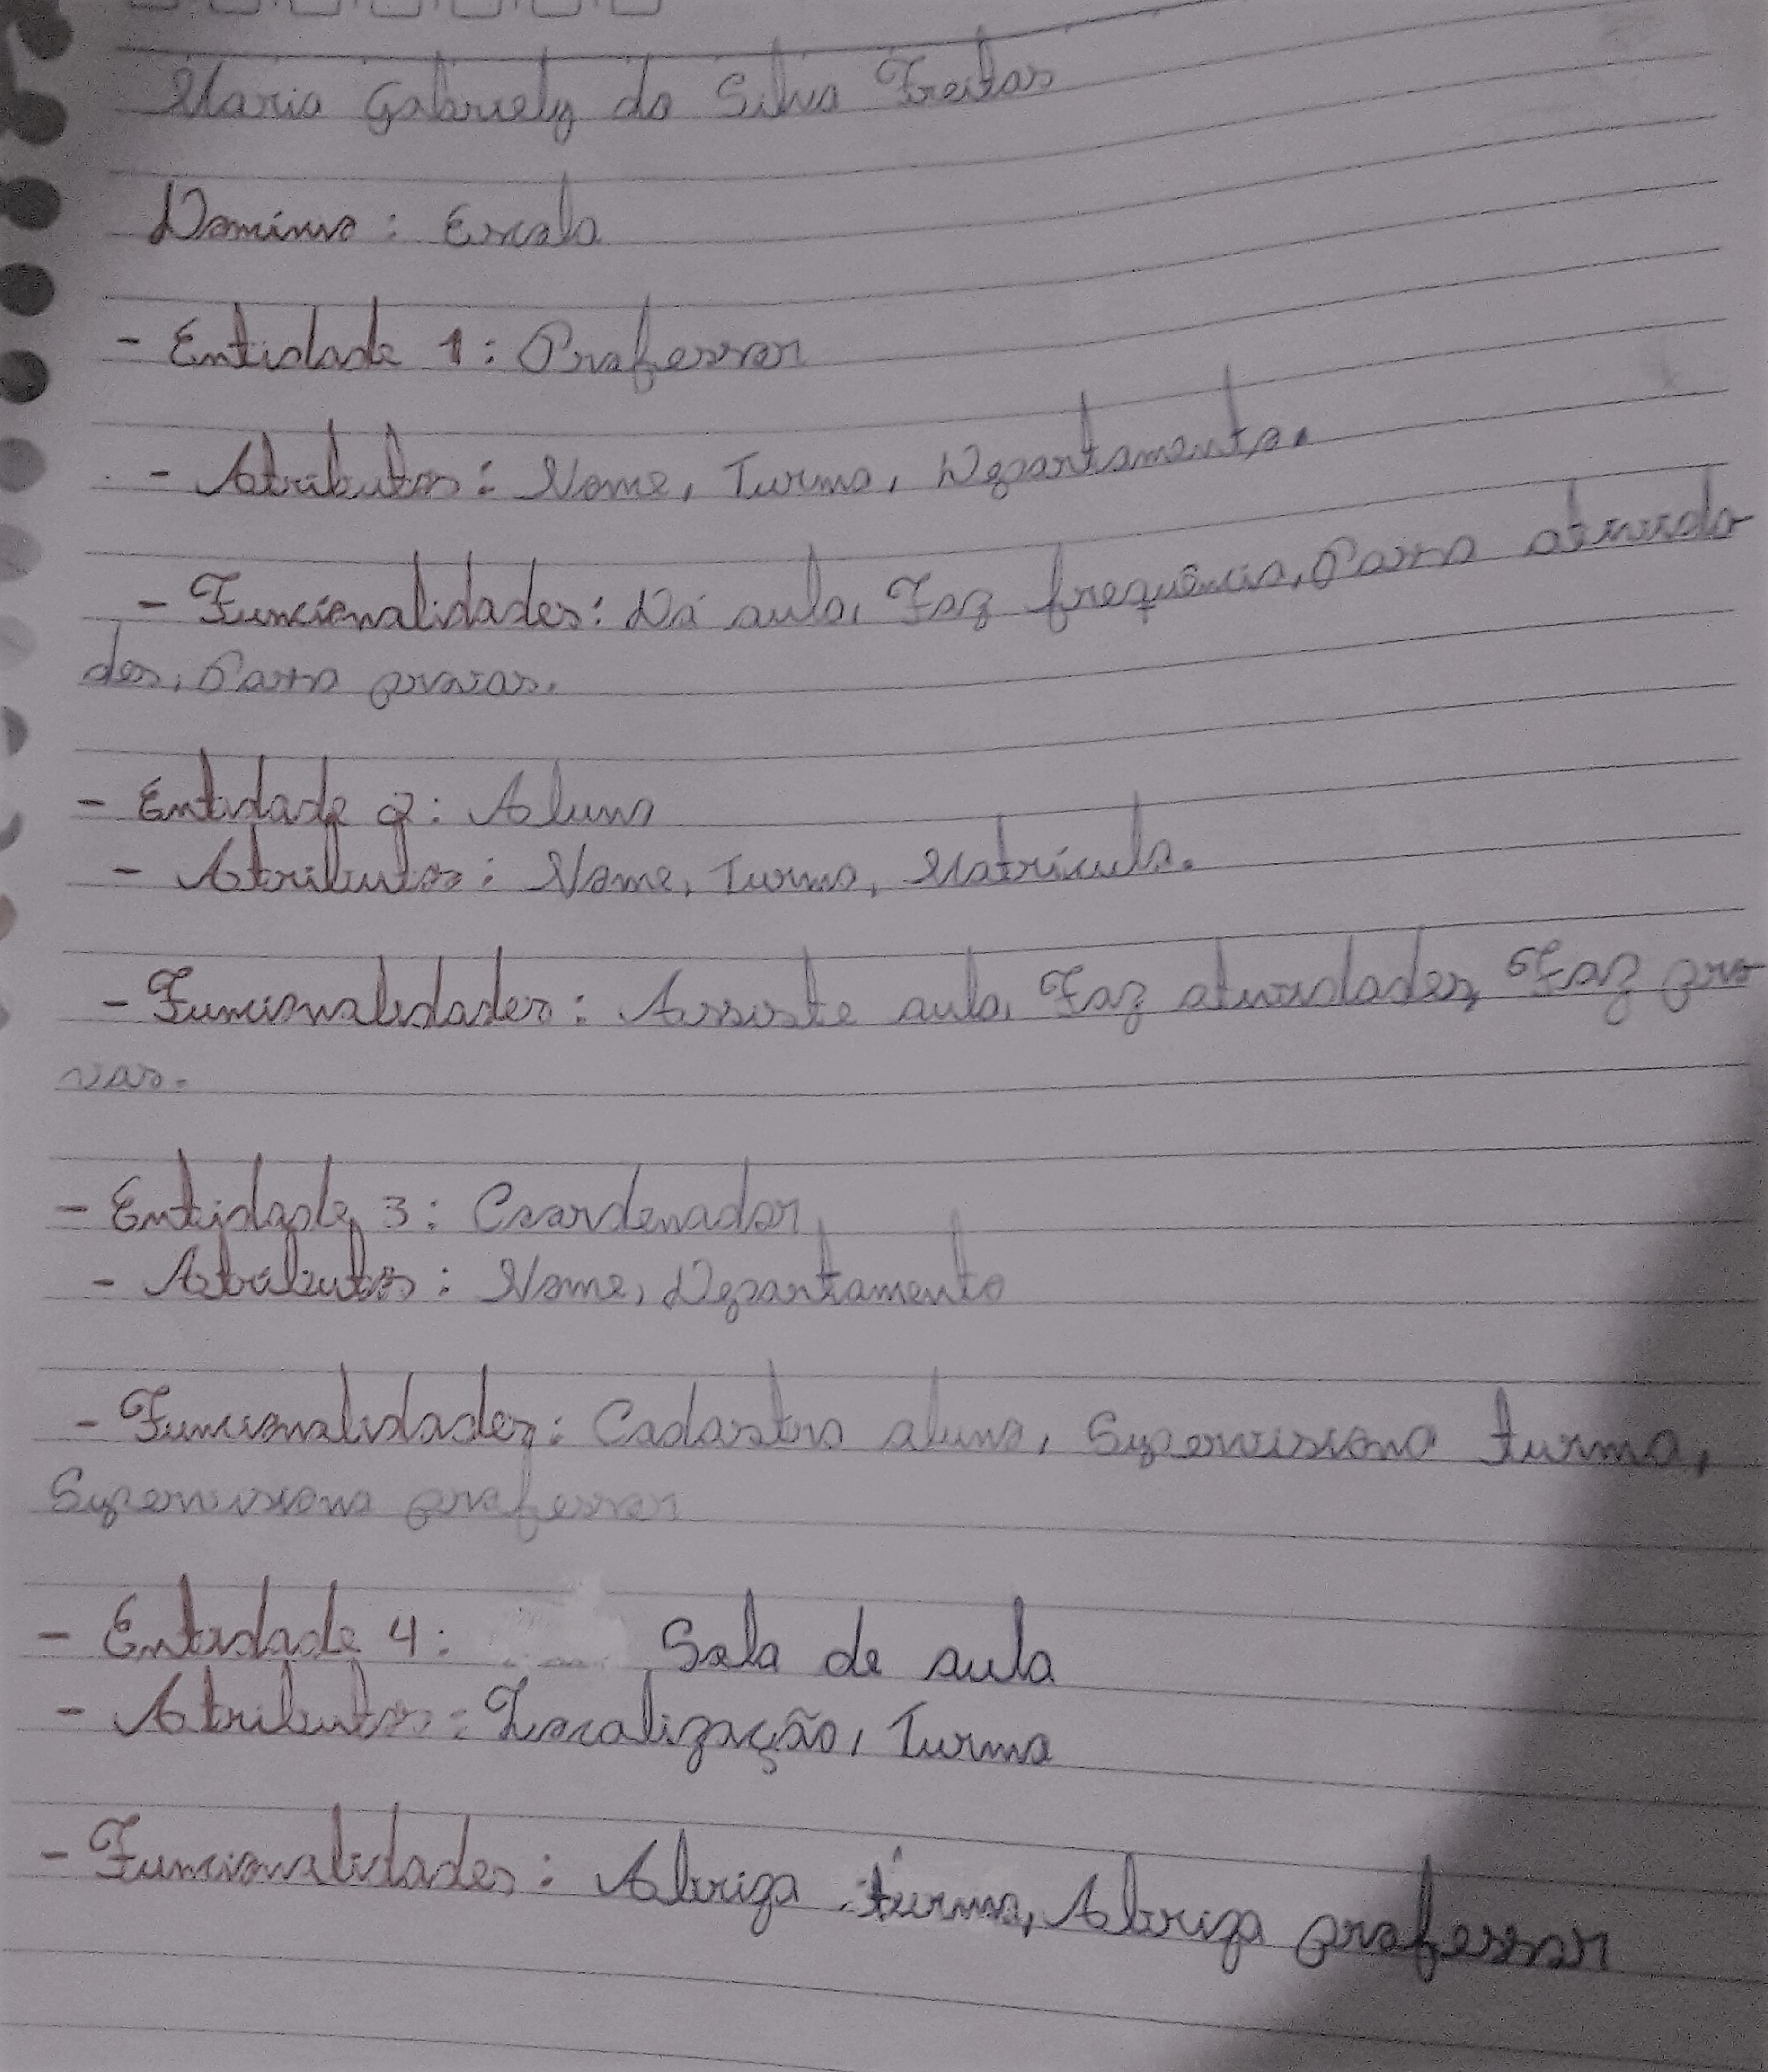 Maria Gabriely da Silva Freitas
Domínio: Escola
- Entidade 1: Professor
- Atributos: Nome, Turma, Departamento.
- Funcionalidades: Dá aula, Faz frequência, Passa ativida
des, Passa provas.
- Entidade 2: Aluno
- Atributos: Nome, Turma, Matrícula.
- Funcionalidades: Assiste aula, Faz atividades, Faz pro
vas.
- Entidade 3: Coordenador
- Atributos: Nome, Departamento
- Funcionalidades: Cadastra aluno, Supervisiona turma,
Supervisiona professor
- Entidade 4: Sala de aula
- Atributos: Localização, Turma
- Funcionalidades: Abriga turma, Abriga professor